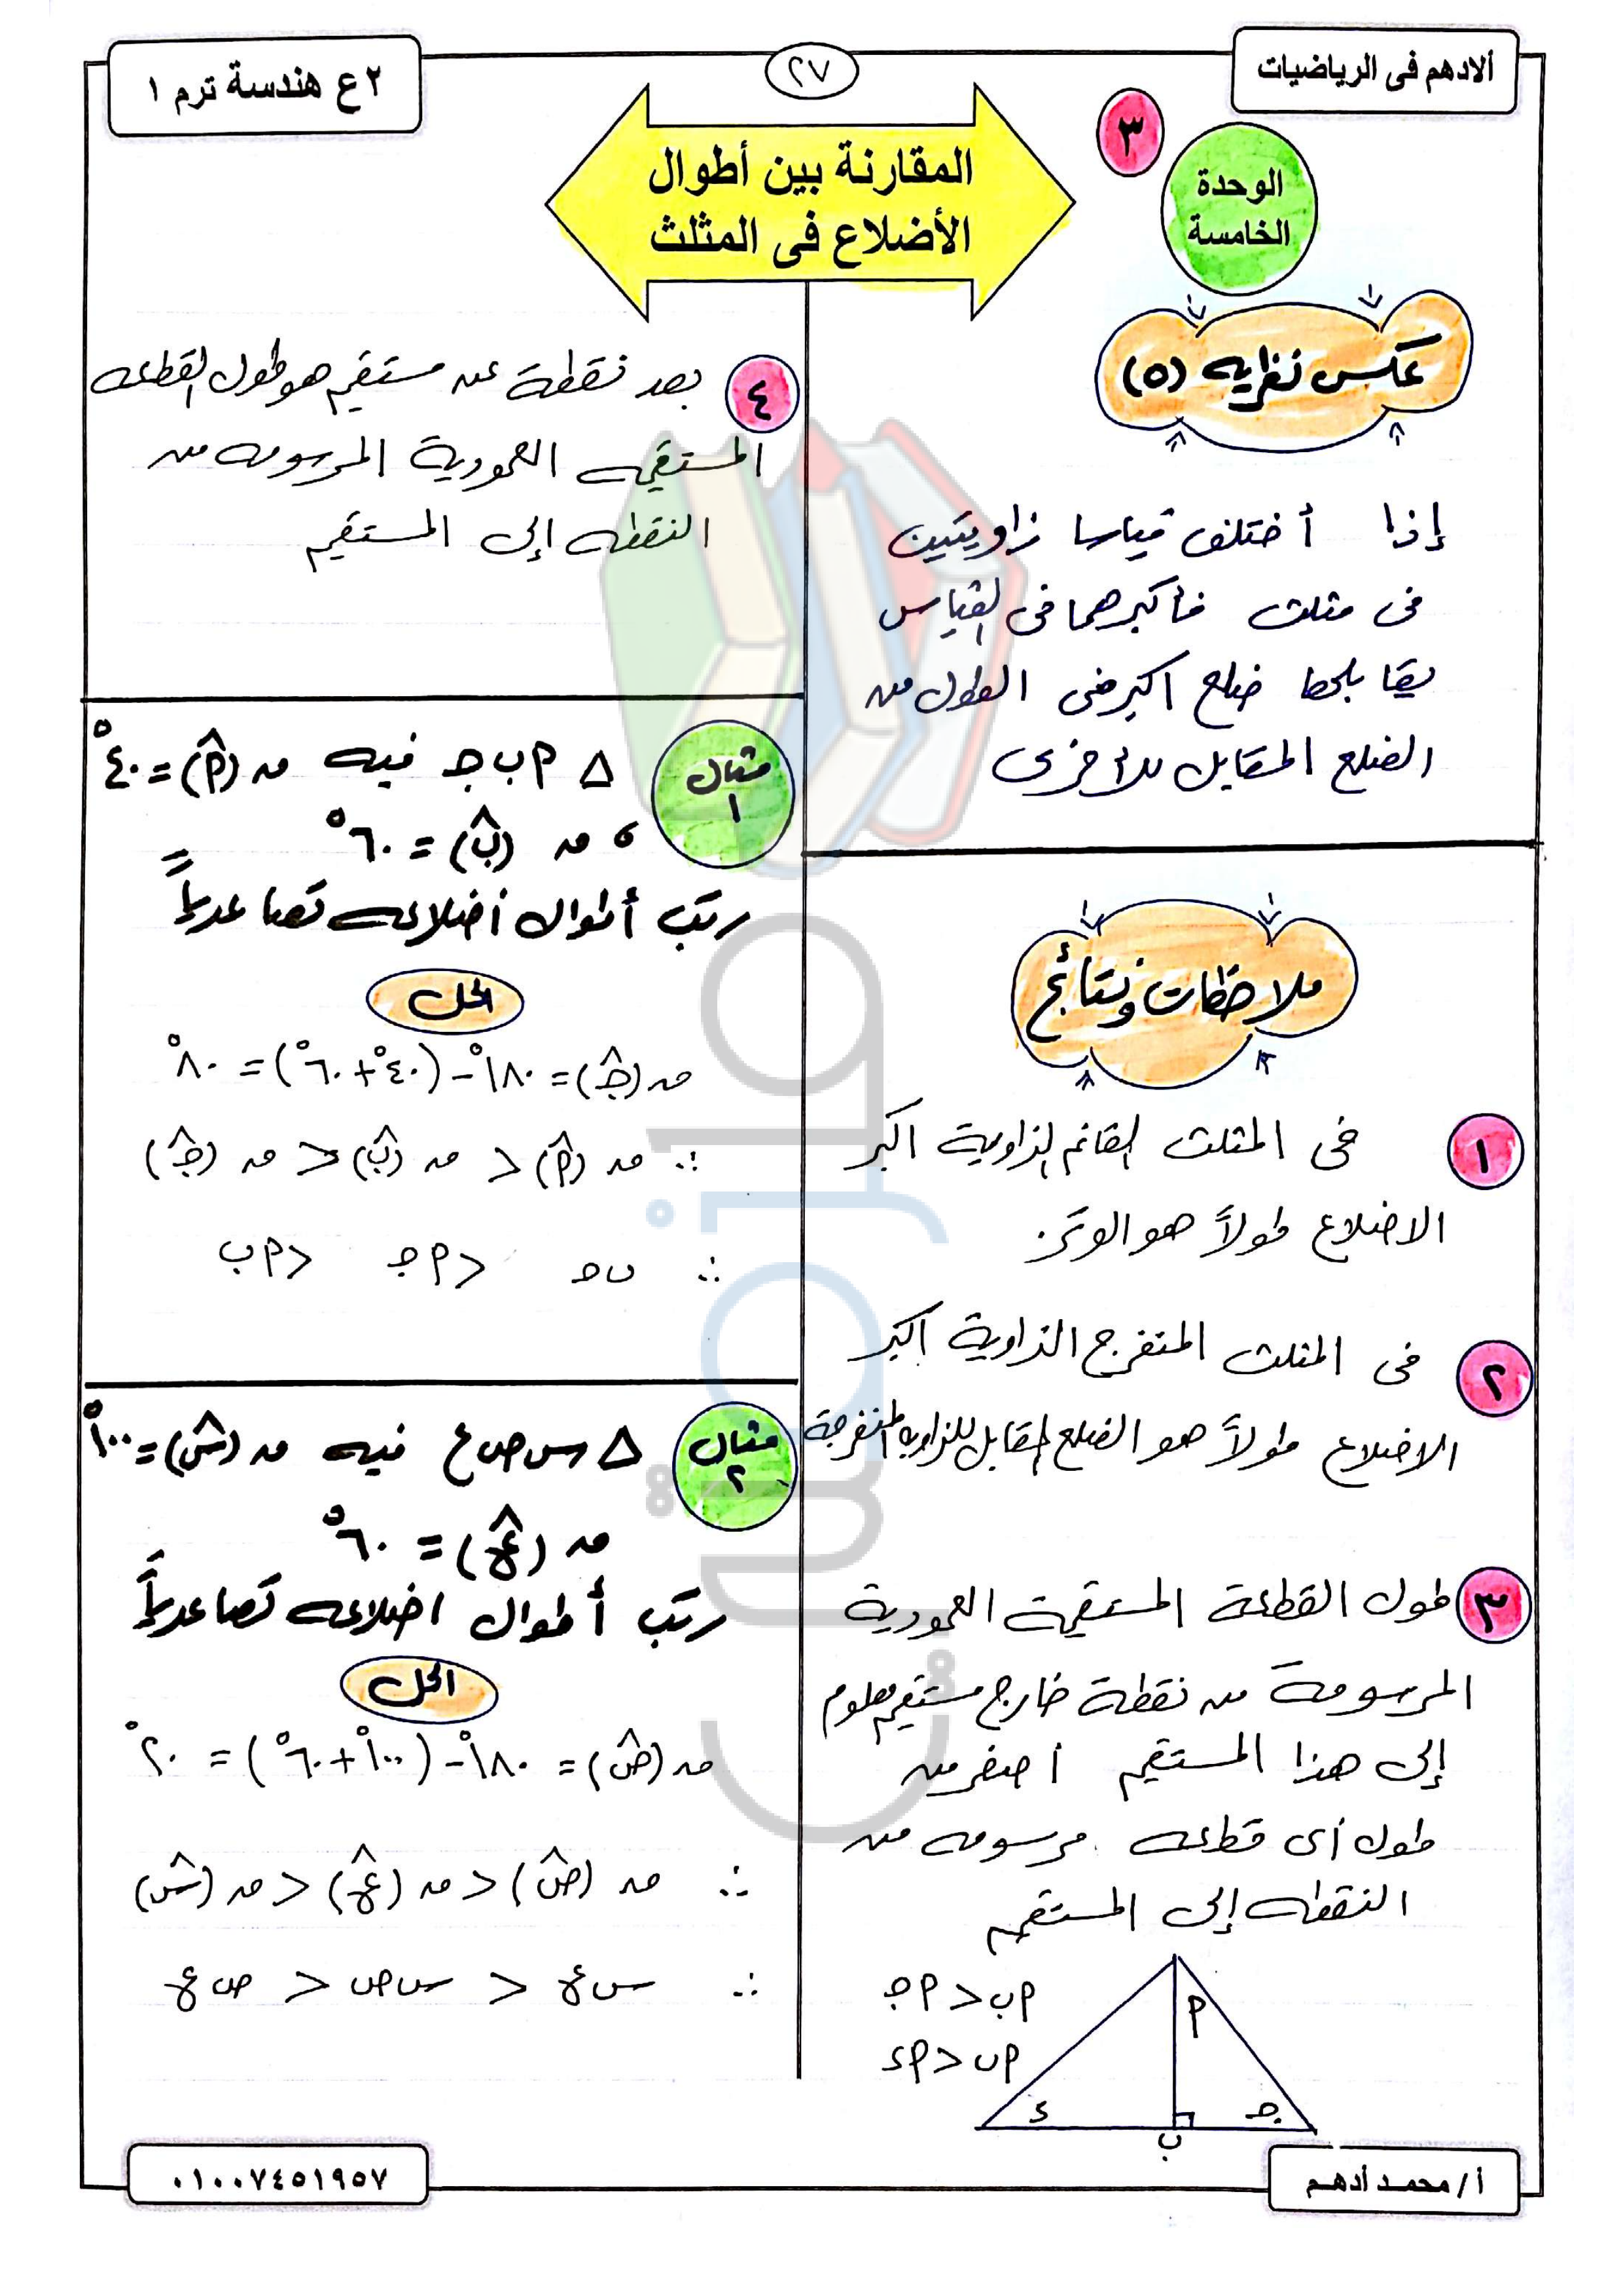 ألادهم فى الرياضيات
٢٧
٢ع هندسة ترم ١
٣
الوحدة
الخامسة
المقارنة بين أطوال
الأضلاع فى المثلث
عكس نظريه (٥)
إذا أختلف قياسا زاويتين
فى مثلث فأكبرهما فى القياس
يقابلها ضلع اكبر فى الطول من
الضلع المقابل للأخرى
ملاحظات ونتائج
١ فى المثلث القائم الزاوية اكبر
الاضلاع طولاً هو الوتر.
٢ فى المثلث المنفرج الزاوية اكبر
الاضلاع طولاً هو الضلع المقابل للزاوية المنفرجة
٣ طول القطعة المستقيمة العمودية
المرسومة من نقطة خارج مستقيم معلوم
إلى هذا المستقيم أصغر من
طول أى قطعه مرسومه من
النقطه إلى المستقيم
م ب < م جـ
م ب < م ء
م
ء
جـ
ب
٤ بعد نقطة عن مستقيم هو طول القطعه
المستقيمه العمودية المرسومه من
النقطه إلى المستقيم
مثال ١
△ م ب جـ فيه مـ (م̂) = ٤٠°
، مـ (ب̂) = ٦٠°
رتب أطوال أضلاعه تصاعدياً
الحل
مـ (جـ̂) = ١٨٠° - (٤٠° + ٦٠°) = ٨٠°
∴ مـ (م̂) < مـ (ب̂) < مـ (جـ̂)
∴ ب جـ < م جـ < م ب
مثال ٢
△ س ص ع فيه مـ (س̂) = ١٠٠°
مـ (ع̂) = ٦٠°
رتب أطوال اضلاعه تصاعدياً
الحل
مـ (ص̂) = ١٨٠° - (١٠٠° + ٦٠°) = ٢٠°
∴ مـ (ص̂) < مـ (ع̂) < مـ (س̂)
∴ س ع < س ص < ص ع
أ/ محمد أدهم
٠١٠٠٧٤٥١٩٥٧